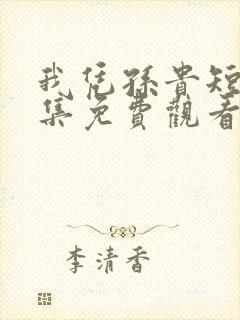 我凭孫貴短
集免費觀看
李清香